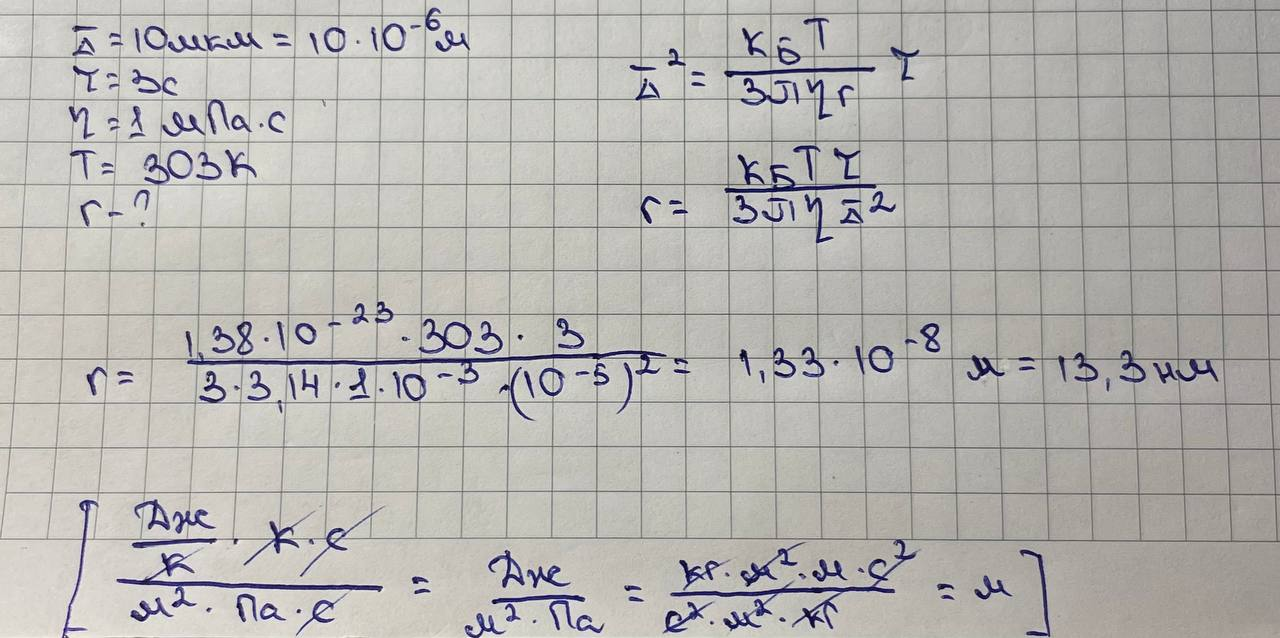 Δ̅ = 10мкм = 10·10⁻⁶м
τ = 3с
η = 1 мПа·с
T = 303К
r - ?
Δ̅² = (к_Б T)/(3πηr) τ
r = (к_Б T τ)/(3πηΔ̅²)
r = (1,38·10⁻²³·303·3)/(3·3,14·1·10⁻³·(10⁻⁵)²) = 1,33·10⁻⁸ м = 13,3нм
[(Дж/К · К·с)/(м²·Па·с) = Дж/(м²·Па) = (кг·м²·м·с²)/(с²·м²·кг) = м]